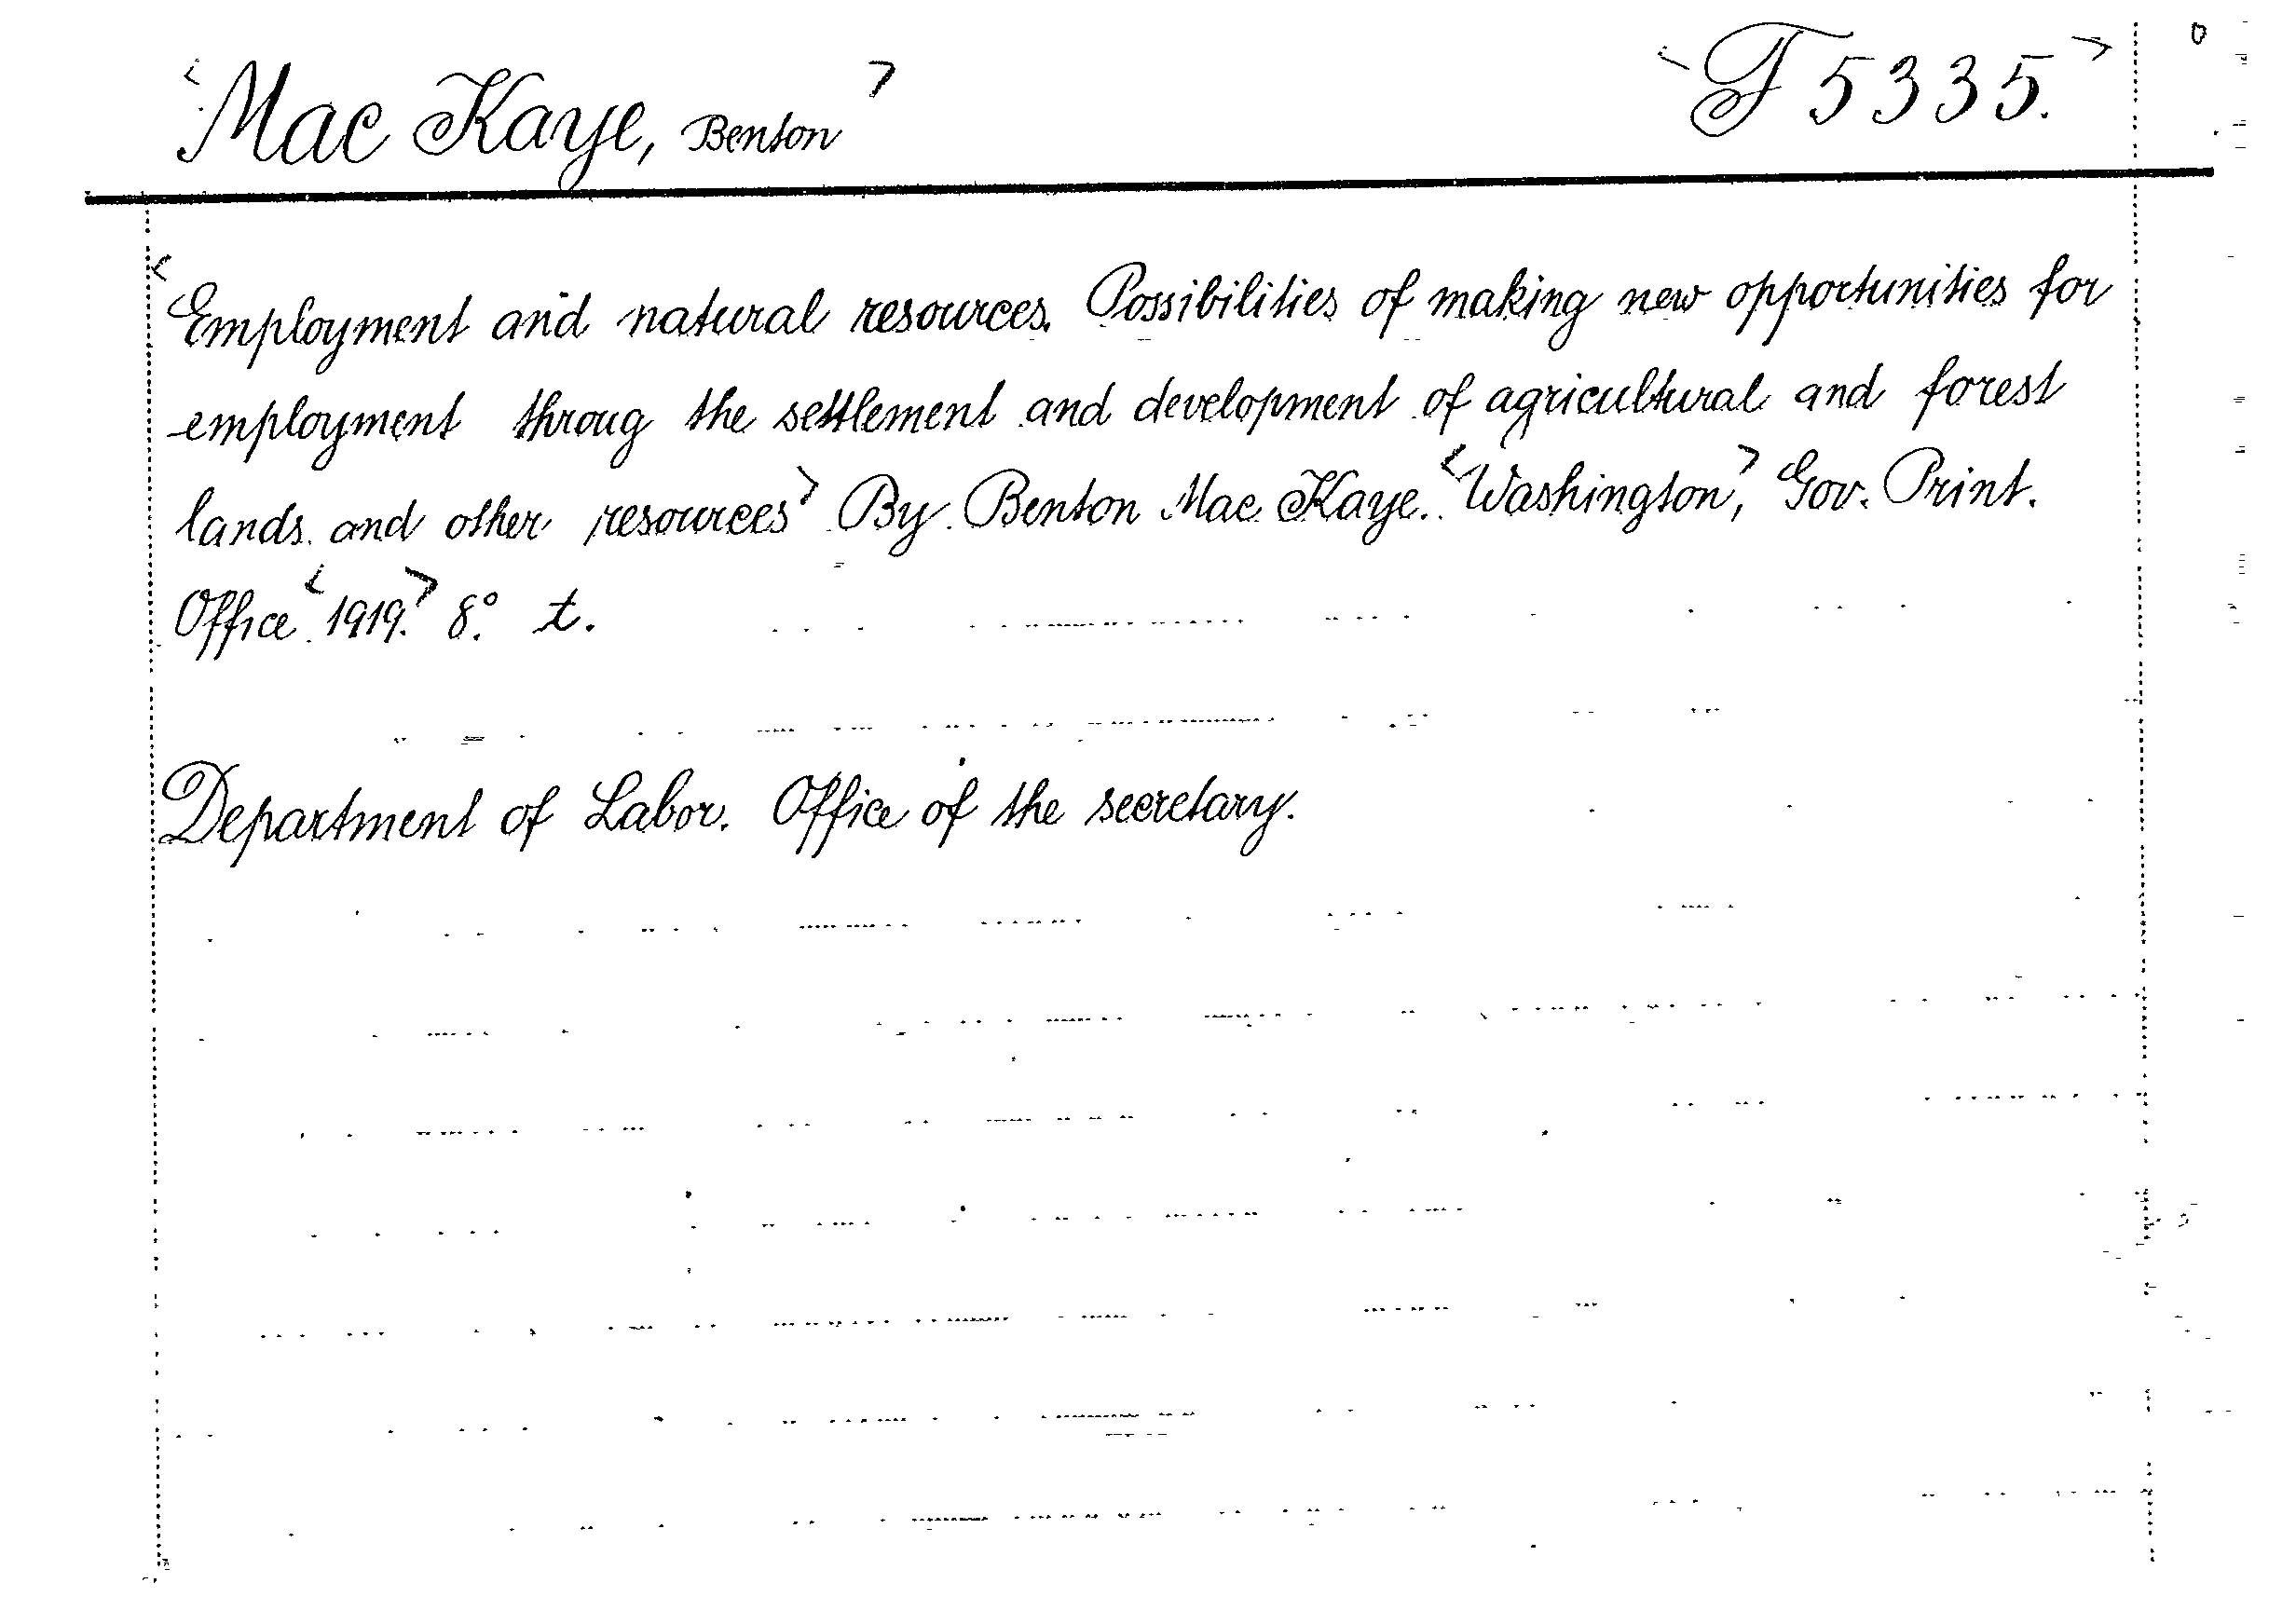 <Mac Kaye, Benton> <F 5335.>
<Employment and natural resources. Possibilities of making new opportunities for
employment throug the settlement and development of agricultural and forest
lands and other resources> By Benton Mac Kaye. <Washington>, Gov. Print.
Office <1919.> 8.° t.
Department of Labor. Office of the secretary.